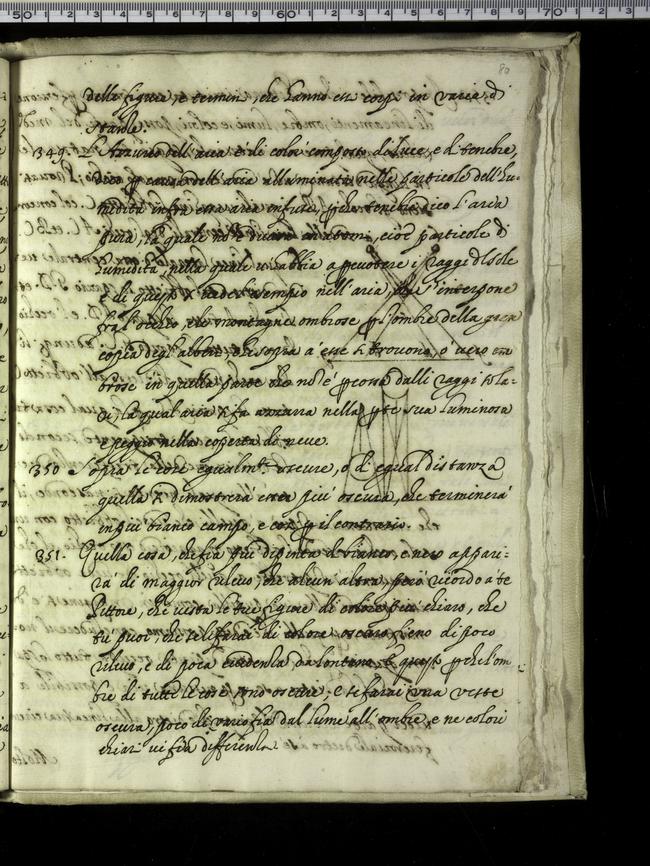 80
delle figure, e termini, che hanno essi corpi in varie di
stanze.
1349. L'Azzurro dell'aria è di color composto di luce, e di tenebre,
dico causa dell'aria alluminata nelle particole dell'hu-
midità infra essa aria infuse, tenebre dico l'aria
pura, la quale non è divisa in atomi, cioè particole di
humidità, nella quale s'abbia a percotere i raggi del sole
e di questo si vede l'esempio nell'aria, che s'interpone
fra l'occhio, e le montagne ombrose l'ombre della gran
copia degl'alberi, che sopra a esse si trovono, o vero om
brose in quella parte che non è percossa dalli raggi sola-
ri, la qual aria si fa azzurra nella parte sua luminosa
e peggio nella coperta di neve.
1350 Sopra le cose egualmente oscure, o di egual distanza
quella si dimostrerà essere più oscura, che terminerà
in più bianco campo, e così il contrario.
1351. Quella cosa, che fia più dipinta di bianco, e nero appari-
rà di maggior rilevo, che alcun altra, però ricordo a te
Pittore, che vesta le tue figure di colore più chiaro, che
tu puoi, che se li farai di colore oscuro fieno di poco
rilevo, e di poca evidenza da lontano, e questo perche l'om
bre di tutte le cose sono oscure, e se farai una veste
oscura, poco di vario fia dal lume all'ombre, e ne colori
chiari vi fia differenza.